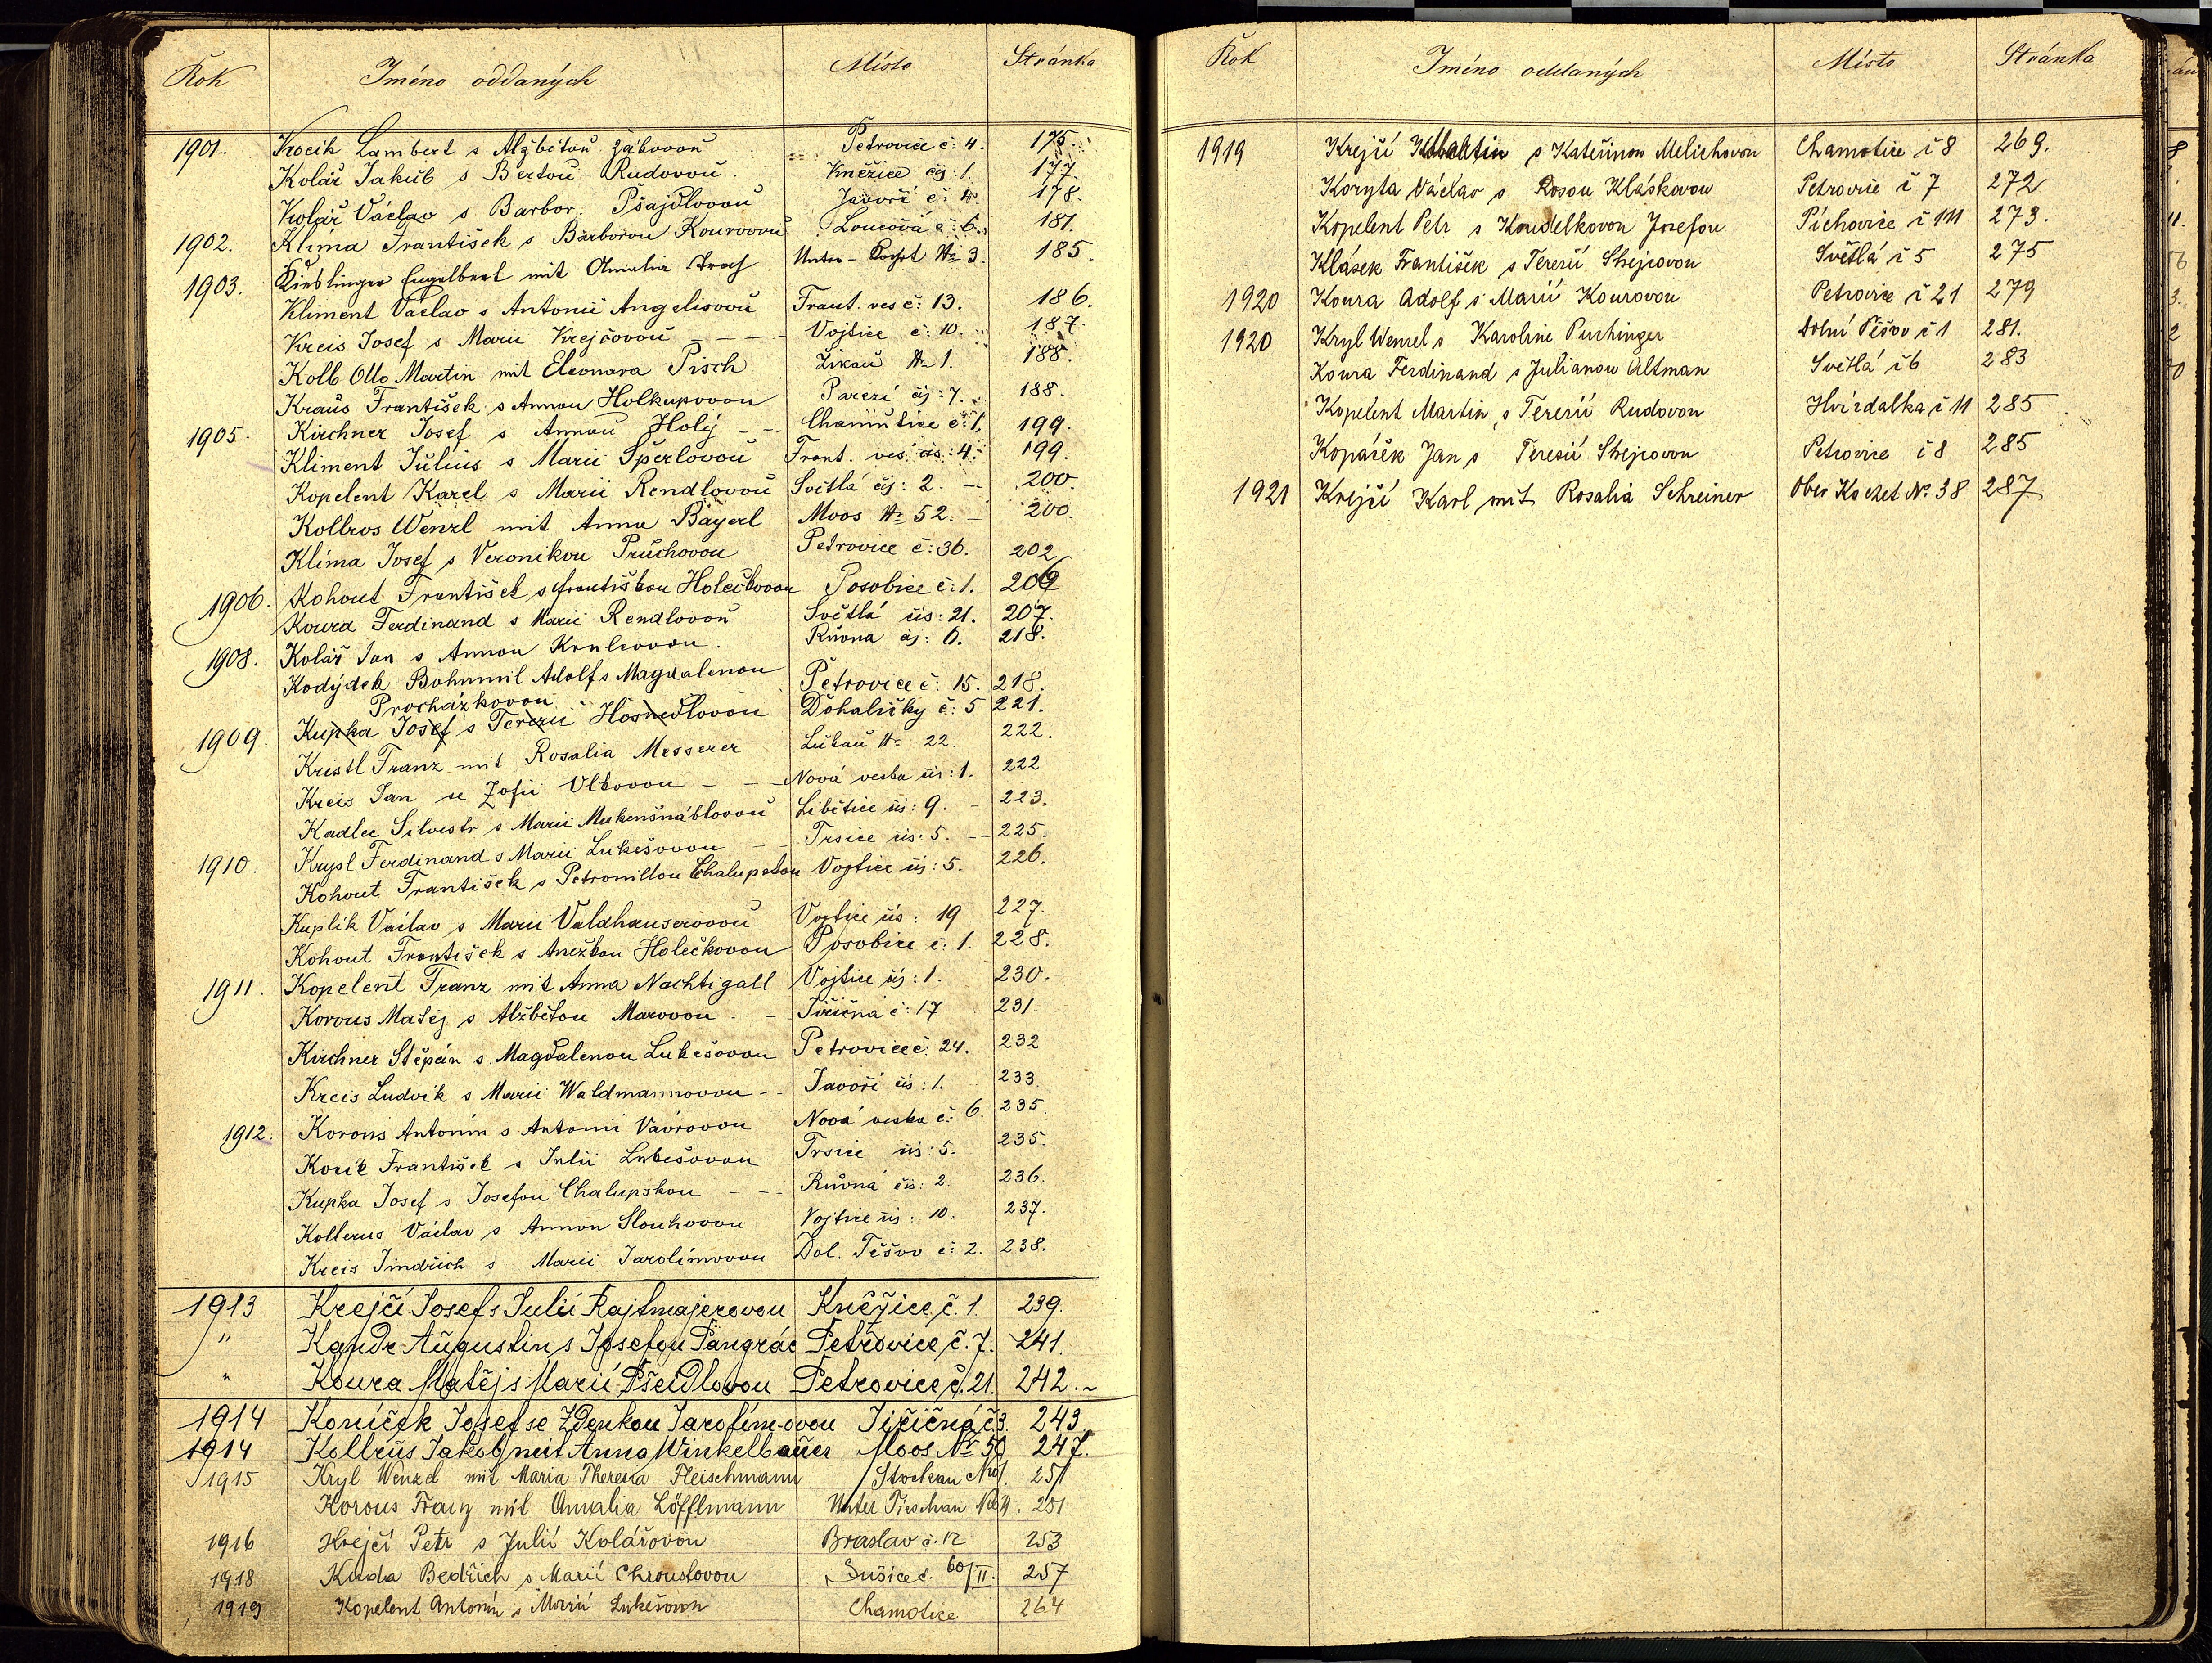 Rok Jméno oddaných Místo Stránka
1901. Kocik Lambert s Alžbětou Petrovice č: 4. 175.
Kolář Jakub s Bertou Rudovou Kněžice čj: 1. 177.
Kolář Václav s Barbor. Pšajdlovou Javoří č: 4. 178.
1902. Klíma František s Barborou Kourovou Loucová č: 6. 181.
1903. Engelbert mit Amalia Unter- No 3. 185.
Kliment Václav s Antonií Angelisovou Frant. ves č: 13. 186.
Kreis Josef s Marií Krejčovou - - - - Vojtice č: 10. 187.
Kolb Otto Martin mit Eleonora Pisch Žikau No 1. 188.
Kraus František s Annou Holkupovou Pařezí čj: 7. 188.
1905. Kirchner Josef s Annou Holý - - Chamutice č: 1. 199.
Kliment Julius s Marií Šperlovou Frant. ves čís: 4. 199.
Kopelent Karel s Marií Rendlovou Světlá čj: 2. - 200.
Kollros Wenzl mit Anna Bayerl Moos No 52. - 200.
Klíma Josef s Veronikou Průchovou Petrovice č: 36. 202
1906. Kohout František s Františkou Holečkovou Posobice č: 1. 206
Koura Ferdinand s Marií Rendlovou Světlá čís: 21. 207.
1908. Kolář Jan s Annou Růvna čj: 6. 218.
Kodýdek Bohumil Adolf s Magdalenou
Procházkovou Petrovice č: 15. 218.
1909. Kupka Josef s Terezií Hosnedlovou Dohaličky č: 5 221.
Kristl Franz mit Rosalia Messerer Lukau No 22. 222.
Kreis Jan se Žofií Vlkovou - - - Nová veska čís: 1. 222
Kadlec Silvestr s Marií Mukenšnáblovou Libětice čís: 9. - 223.
1910. Krysl Ferdinand s Marií Lukešovou - - Trsice čís: 5. -- 225.
Kohout František s Petronillou Chalupskou Vojtice čj: 5. 226.
Kuplík Václav s Marií Valdhauserovou Vojtice čís: 19 227.
Kohout František s Anežkou Holečkovou Posobice č: 1. 228.
1911. Kopelent Franz mit Anna Nachtigall Vojtice čj: 1. 230.
Korous Matěj s Alžbětou Marovou - Jiřičná č: 17 231.
Kirchner Štěpán s Magdalenou Lukešovou Petrovice č: 24. 232
Kreis Ludvík s Marií Waldmannovou - - Javoří čís: 1. 233.
1912. Korous Antonín s Antonií Vávrovou Nová veska č: 6. 235.
František s Julií Lukešovou Trsice čís: 5. 235.
Kupka Josef s Josefou Chalupskou - - - Růvná čís: 2. 236.
Kollerus Václav s Annou Slouhovou Vojtice čís: 10. 237.
Kreis Jindřich s Marií Jarolímovou Dol. Těšov č: 2. 238.
1913 Krejčí Josef s Julií Rajtmajerovou Kněžice č. 1. 239.
" Kandr Augustin s Josefou Pangrác Petrovice č. 7. 241.
" Koura Matěj s Marií Pšeidlovou Petrovice č. 21. 242.
1914 Koníček Josef se Zdenkou Jarolím-ovou Jiřičná č 3. 243.
1914 Kollrus Jakob mit Anna Winkelbauer Moos No 50 247.
1915 Kryl Wenzel mit Maria Theresia Fleischmann Stockau No 1. 251
Korous Franz mit Amalia Löfflmann Unter Tieschau No 4. 251
1916 Krejčí Petr s Julií Kolářovou Braslav č. 12 253
1918 Kuda Bedřich s Marií Chroustovou Sušice č. 60/II. 257
1919 Kopelent Antonín s Marií Lukešovou Chamotice 264
Rok Jméno oddaných Místo Stránka
1919 Krejčí s Kateřinou Melichovou Chamotice č 8 269.
Koryta Václav s Rosou Kláskovou Petrovice č 7 272
Kopelent Petr s Koudelkovou Josefou Píchovice č 111 273.
Klásek František s Terezií Strejcovou Světlá č 5 275
1920 Koura Adolf s Marií Kourovou Petrovice č 21 279
1920 Kryl Wenzel s Karoline Purhinger Dolní Těšov č 1 281.
Koura Ferdinand s Julianou Altman Světlá č 6 283
Kopelent Martin s Terezií Rudovou Hvízdalka č 11 285
Kopáček Jan s Terezií Strejcovou Petrovice č 8 285
1921 Krejčí Karl mit Rosalia Schreiner Ober Kochet No. 38 287